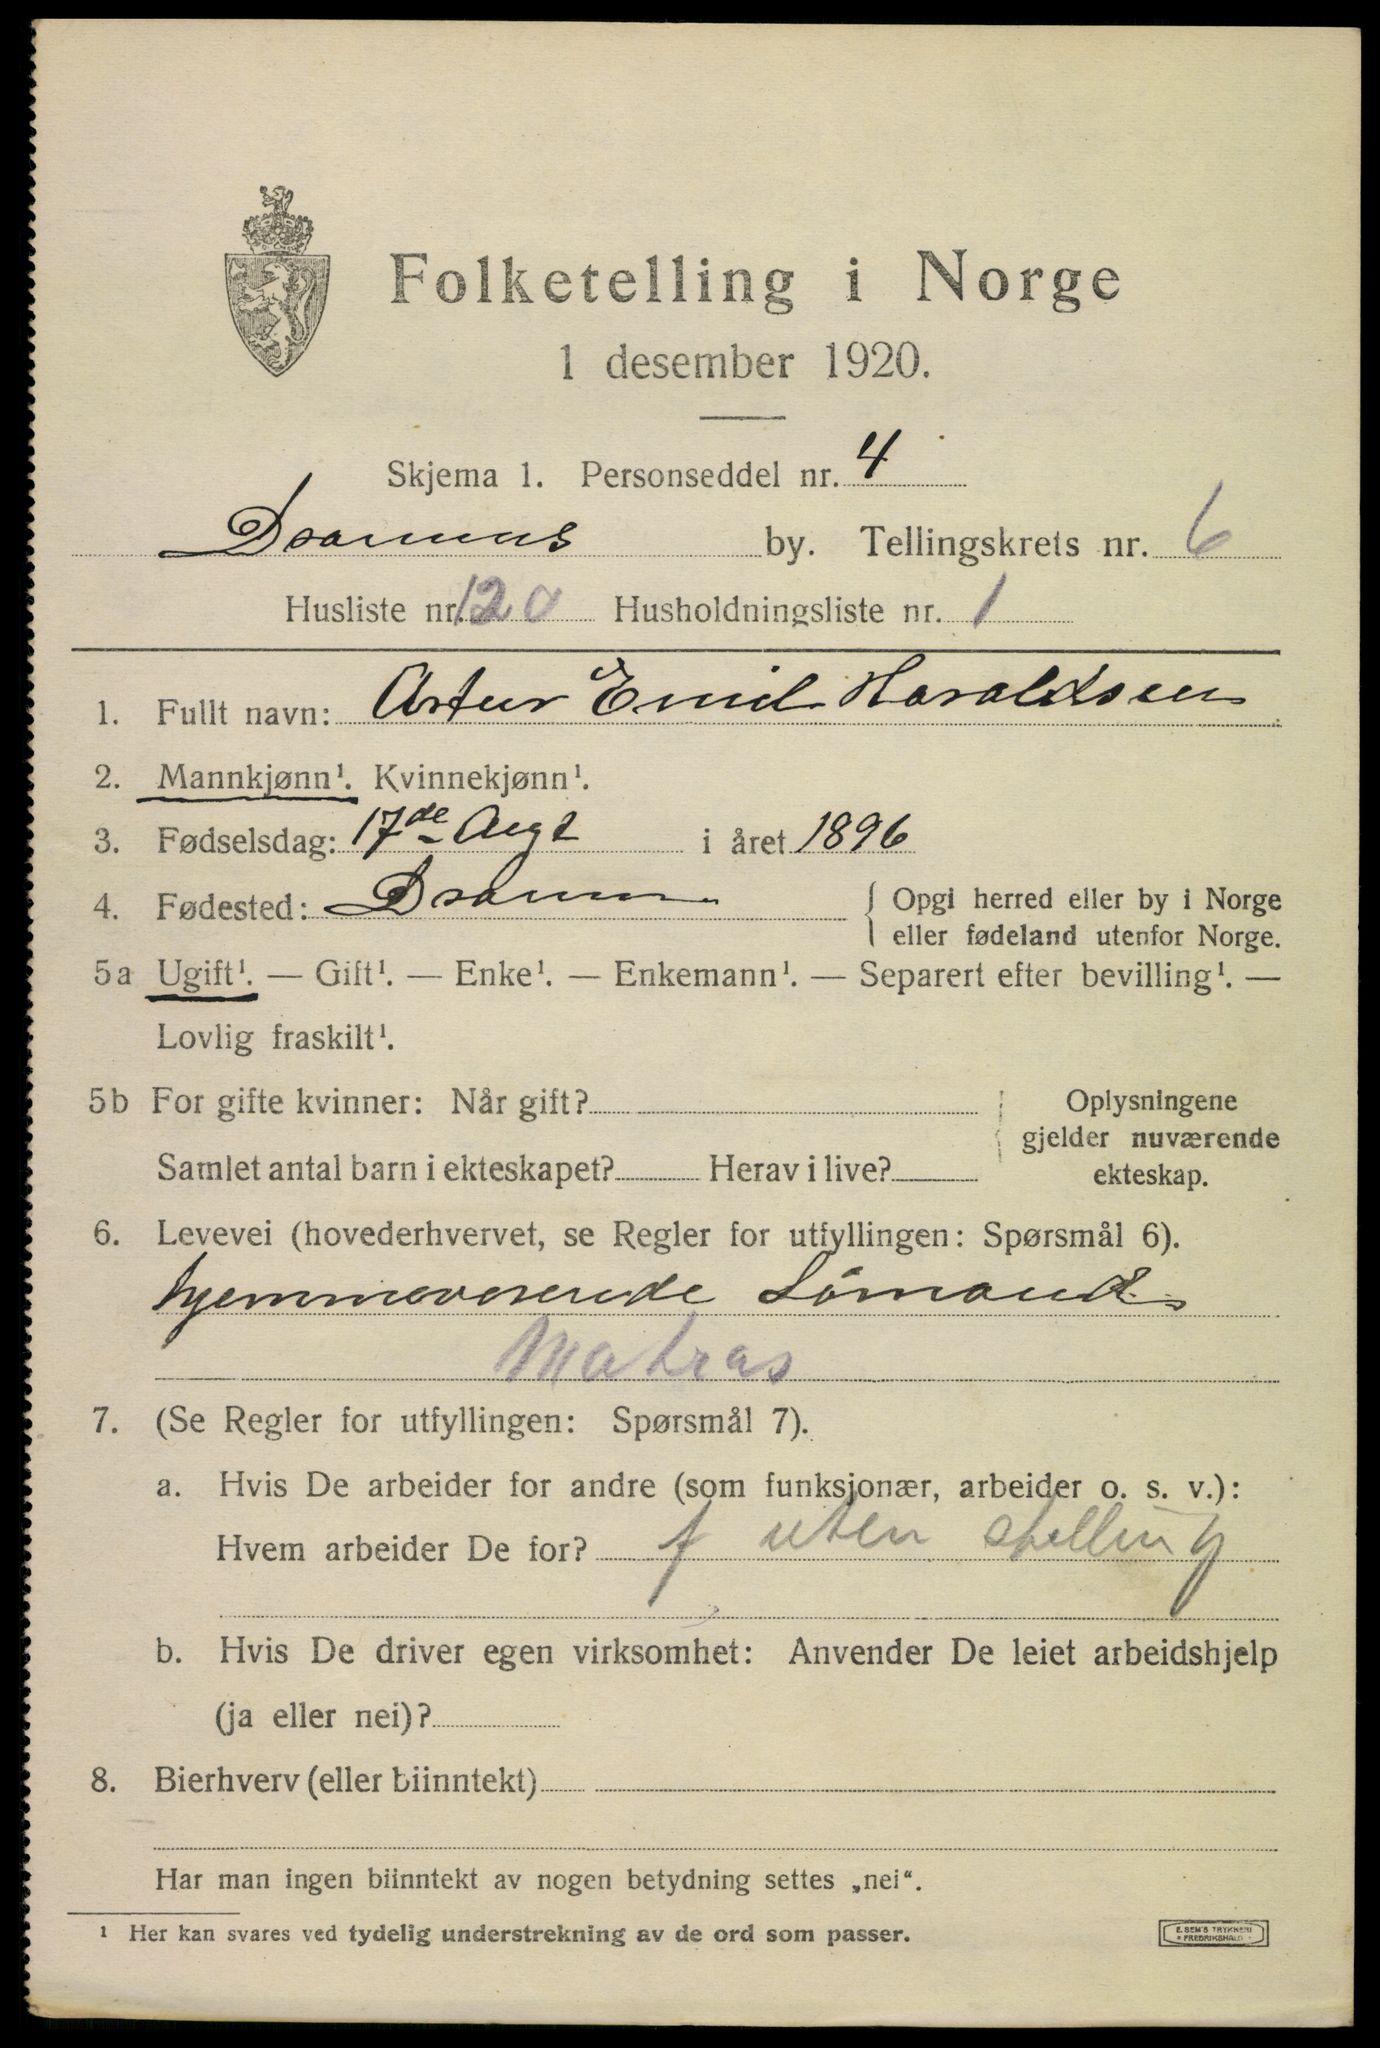 Folketelling i Norge
1 desember 1920.
Skjema 1. Personseddel nr. 4
Drammens by. Tellingskrets nr. 6
Husliste nr. 120 Husholdningsliste nr. 1
1. Fullt navn: Artur Emil Haraldsen
2. Mannkjønn¹. Kvinnekjønn¹.
3. Fødselsdag: 17de Augt i året 1896
4. Fødested: Dramm { Opgi herred eller by i Norge
eller fødeland utenfor Norge.
5a Ugift¹. — Gift¹. — Enke¹. — Enkemann¹. — Separert efter bevilling¹. —
Lovlig fraskilt¹.
5b For gifte kvinner: Når gift? Oplysningene
gjelder nuværende
Samlet antal barn i ekteskapet? Herav i live? ekteskap.
6. Levevei (hovederhvervet, se Regler for utfyllingen: Spørsmål 6).
hjemmeverende Sömand
Matras
7. (Se Regler for utfyllingen: Spørsmål 7).
a. Hvis De arbeider for andre (som funksjonær, arbeider o. s. v.):
Hvem arbeider De for? f uten stelling
b. Hvis De driver egen virksomhet: Anvender De leiet arbeidshjelp
(ja eller nei)?
8. Bierhverv (eller biinntekt)
Har man ingen biinntekt av nogen betydning settes „nei“.
¹ Her kan svares ved tydelig understrekning av de ord som passer.
E. SEM'S TRYKKERI
• FREDRIKSHALD •